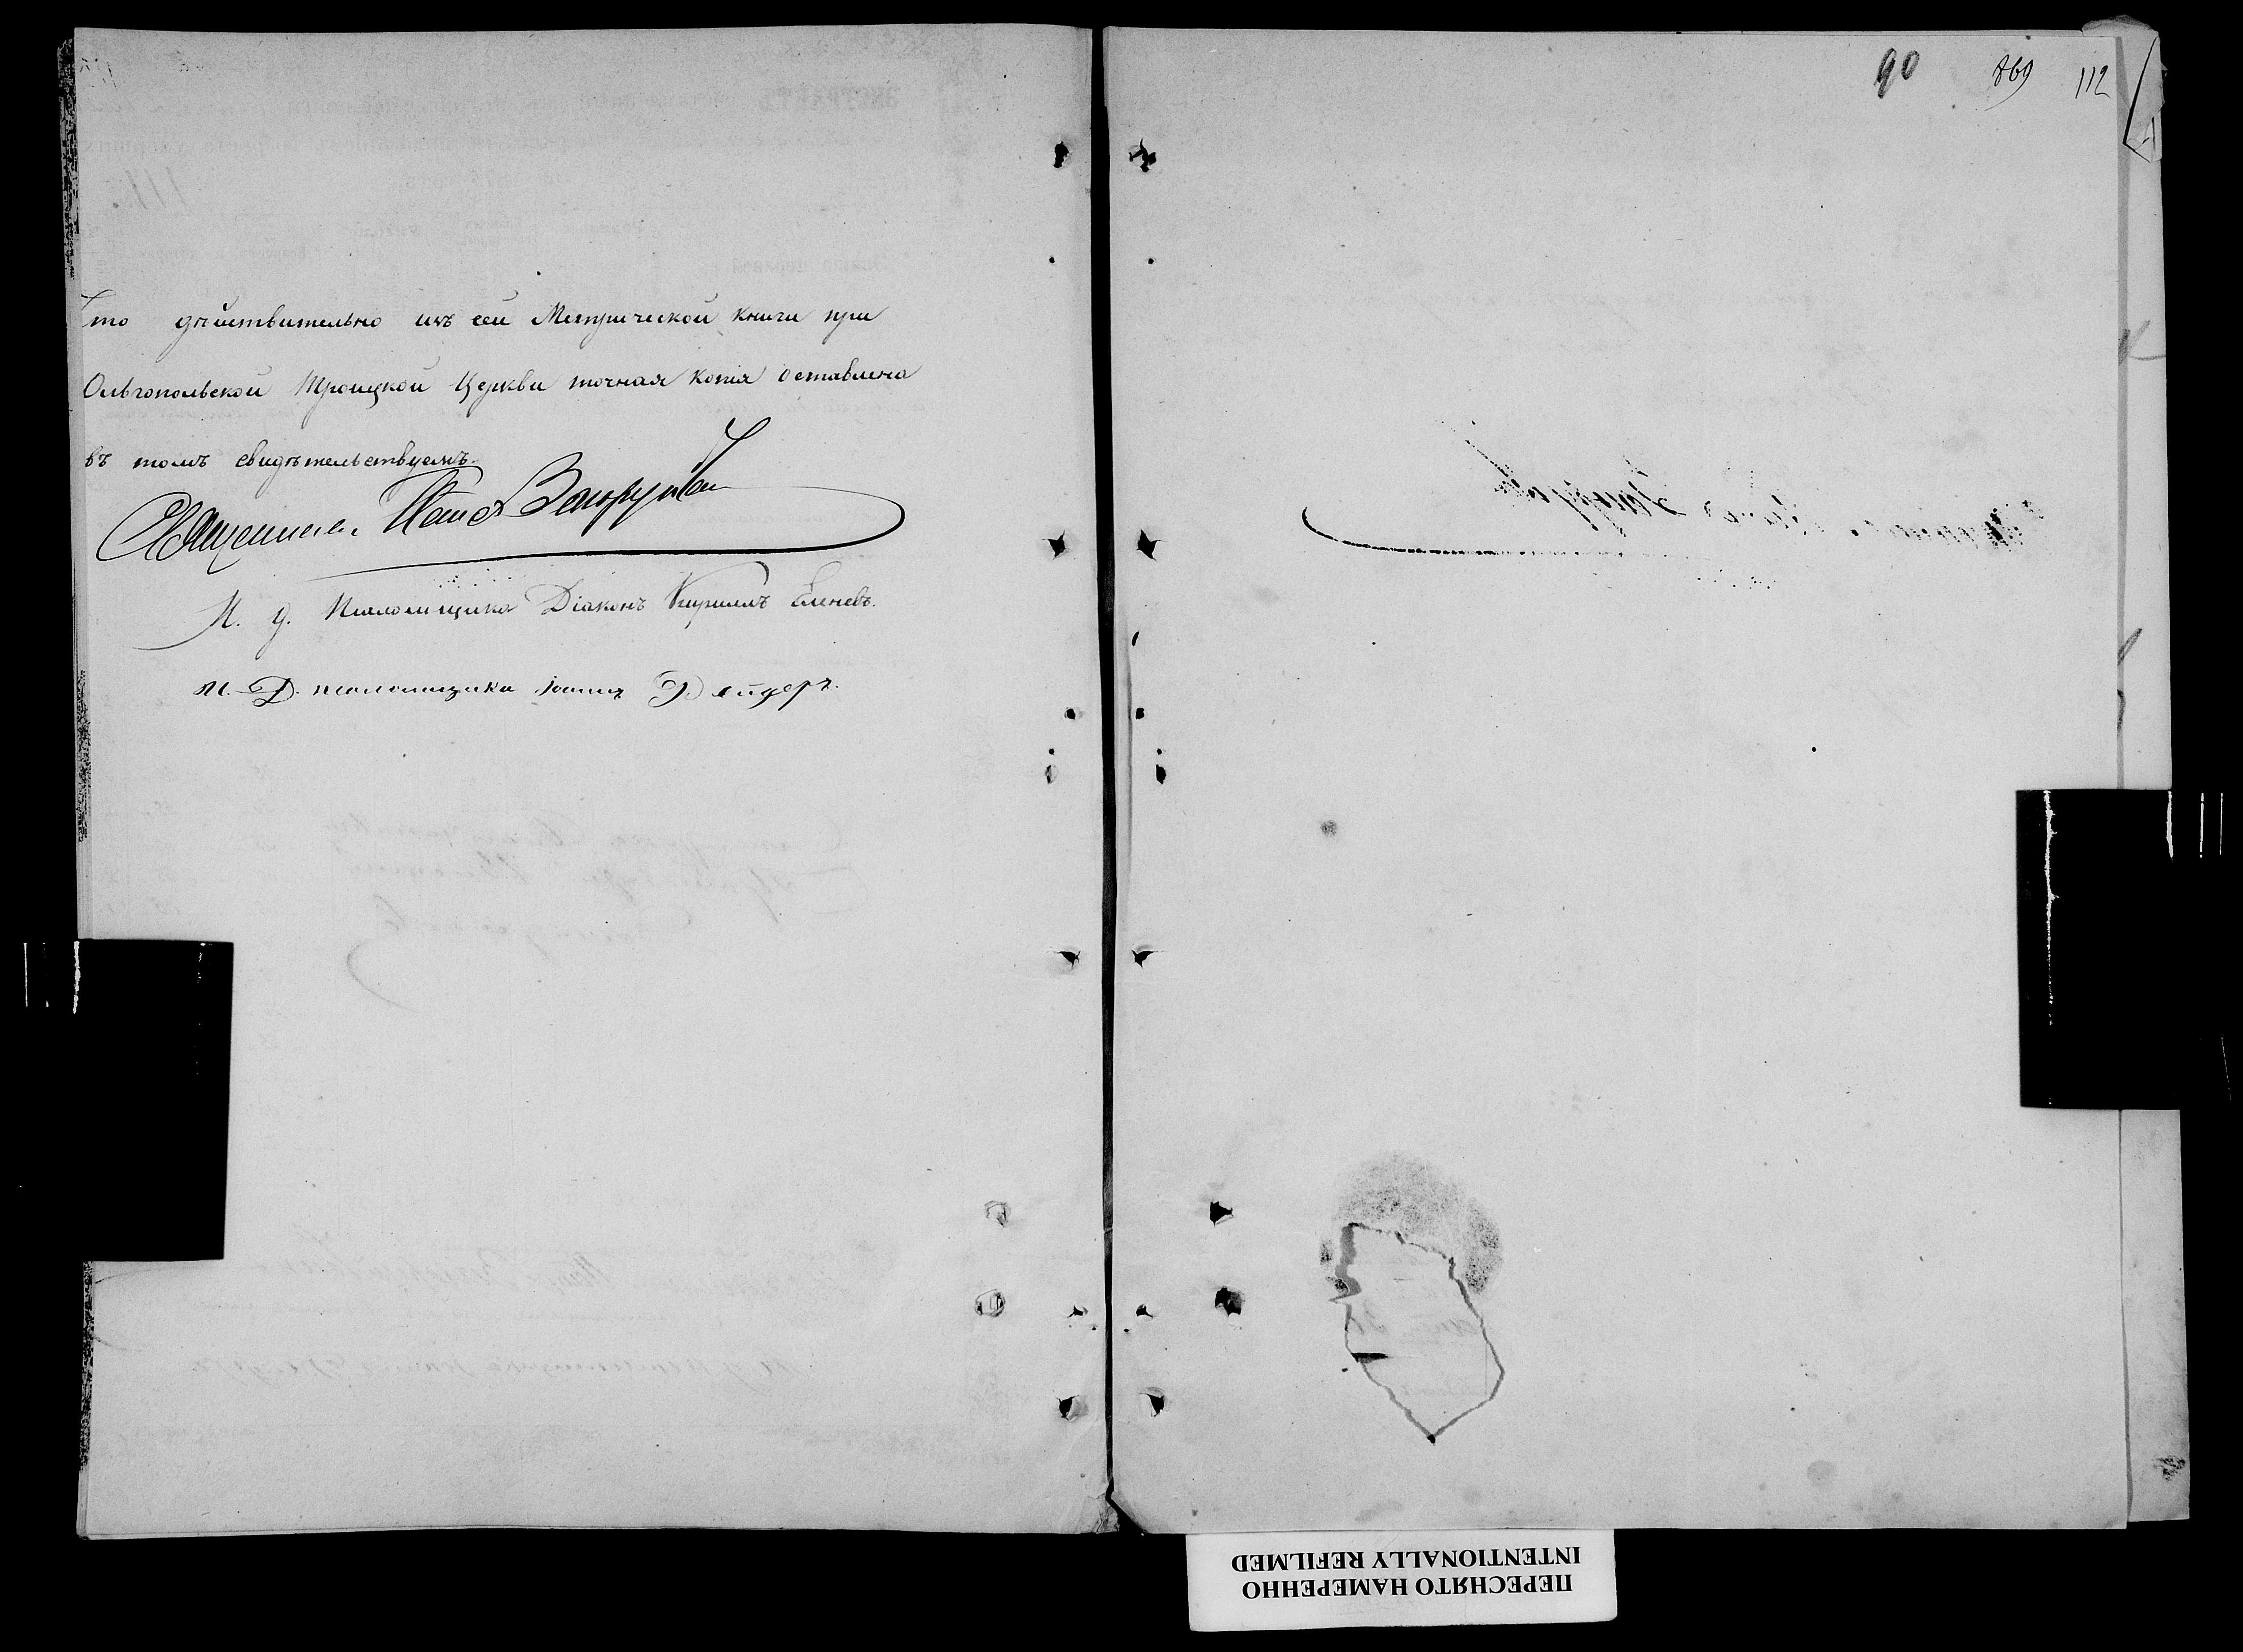 90 869 112
Что дѣйствительно изъ сей Метрической книги при
Ольгопольской Троицкой Церкви точная копія оставлена
въ томъ свидѣтельствуемъ.
Священникъ
И. д. Псаломщика Діаконъ Кириллъ Еленевъ.
И. Д. псаломщика Іоаннъ
ПЕРЕСНЯТО НАМЕРЕННО
INTENTIONALLY REFILMED